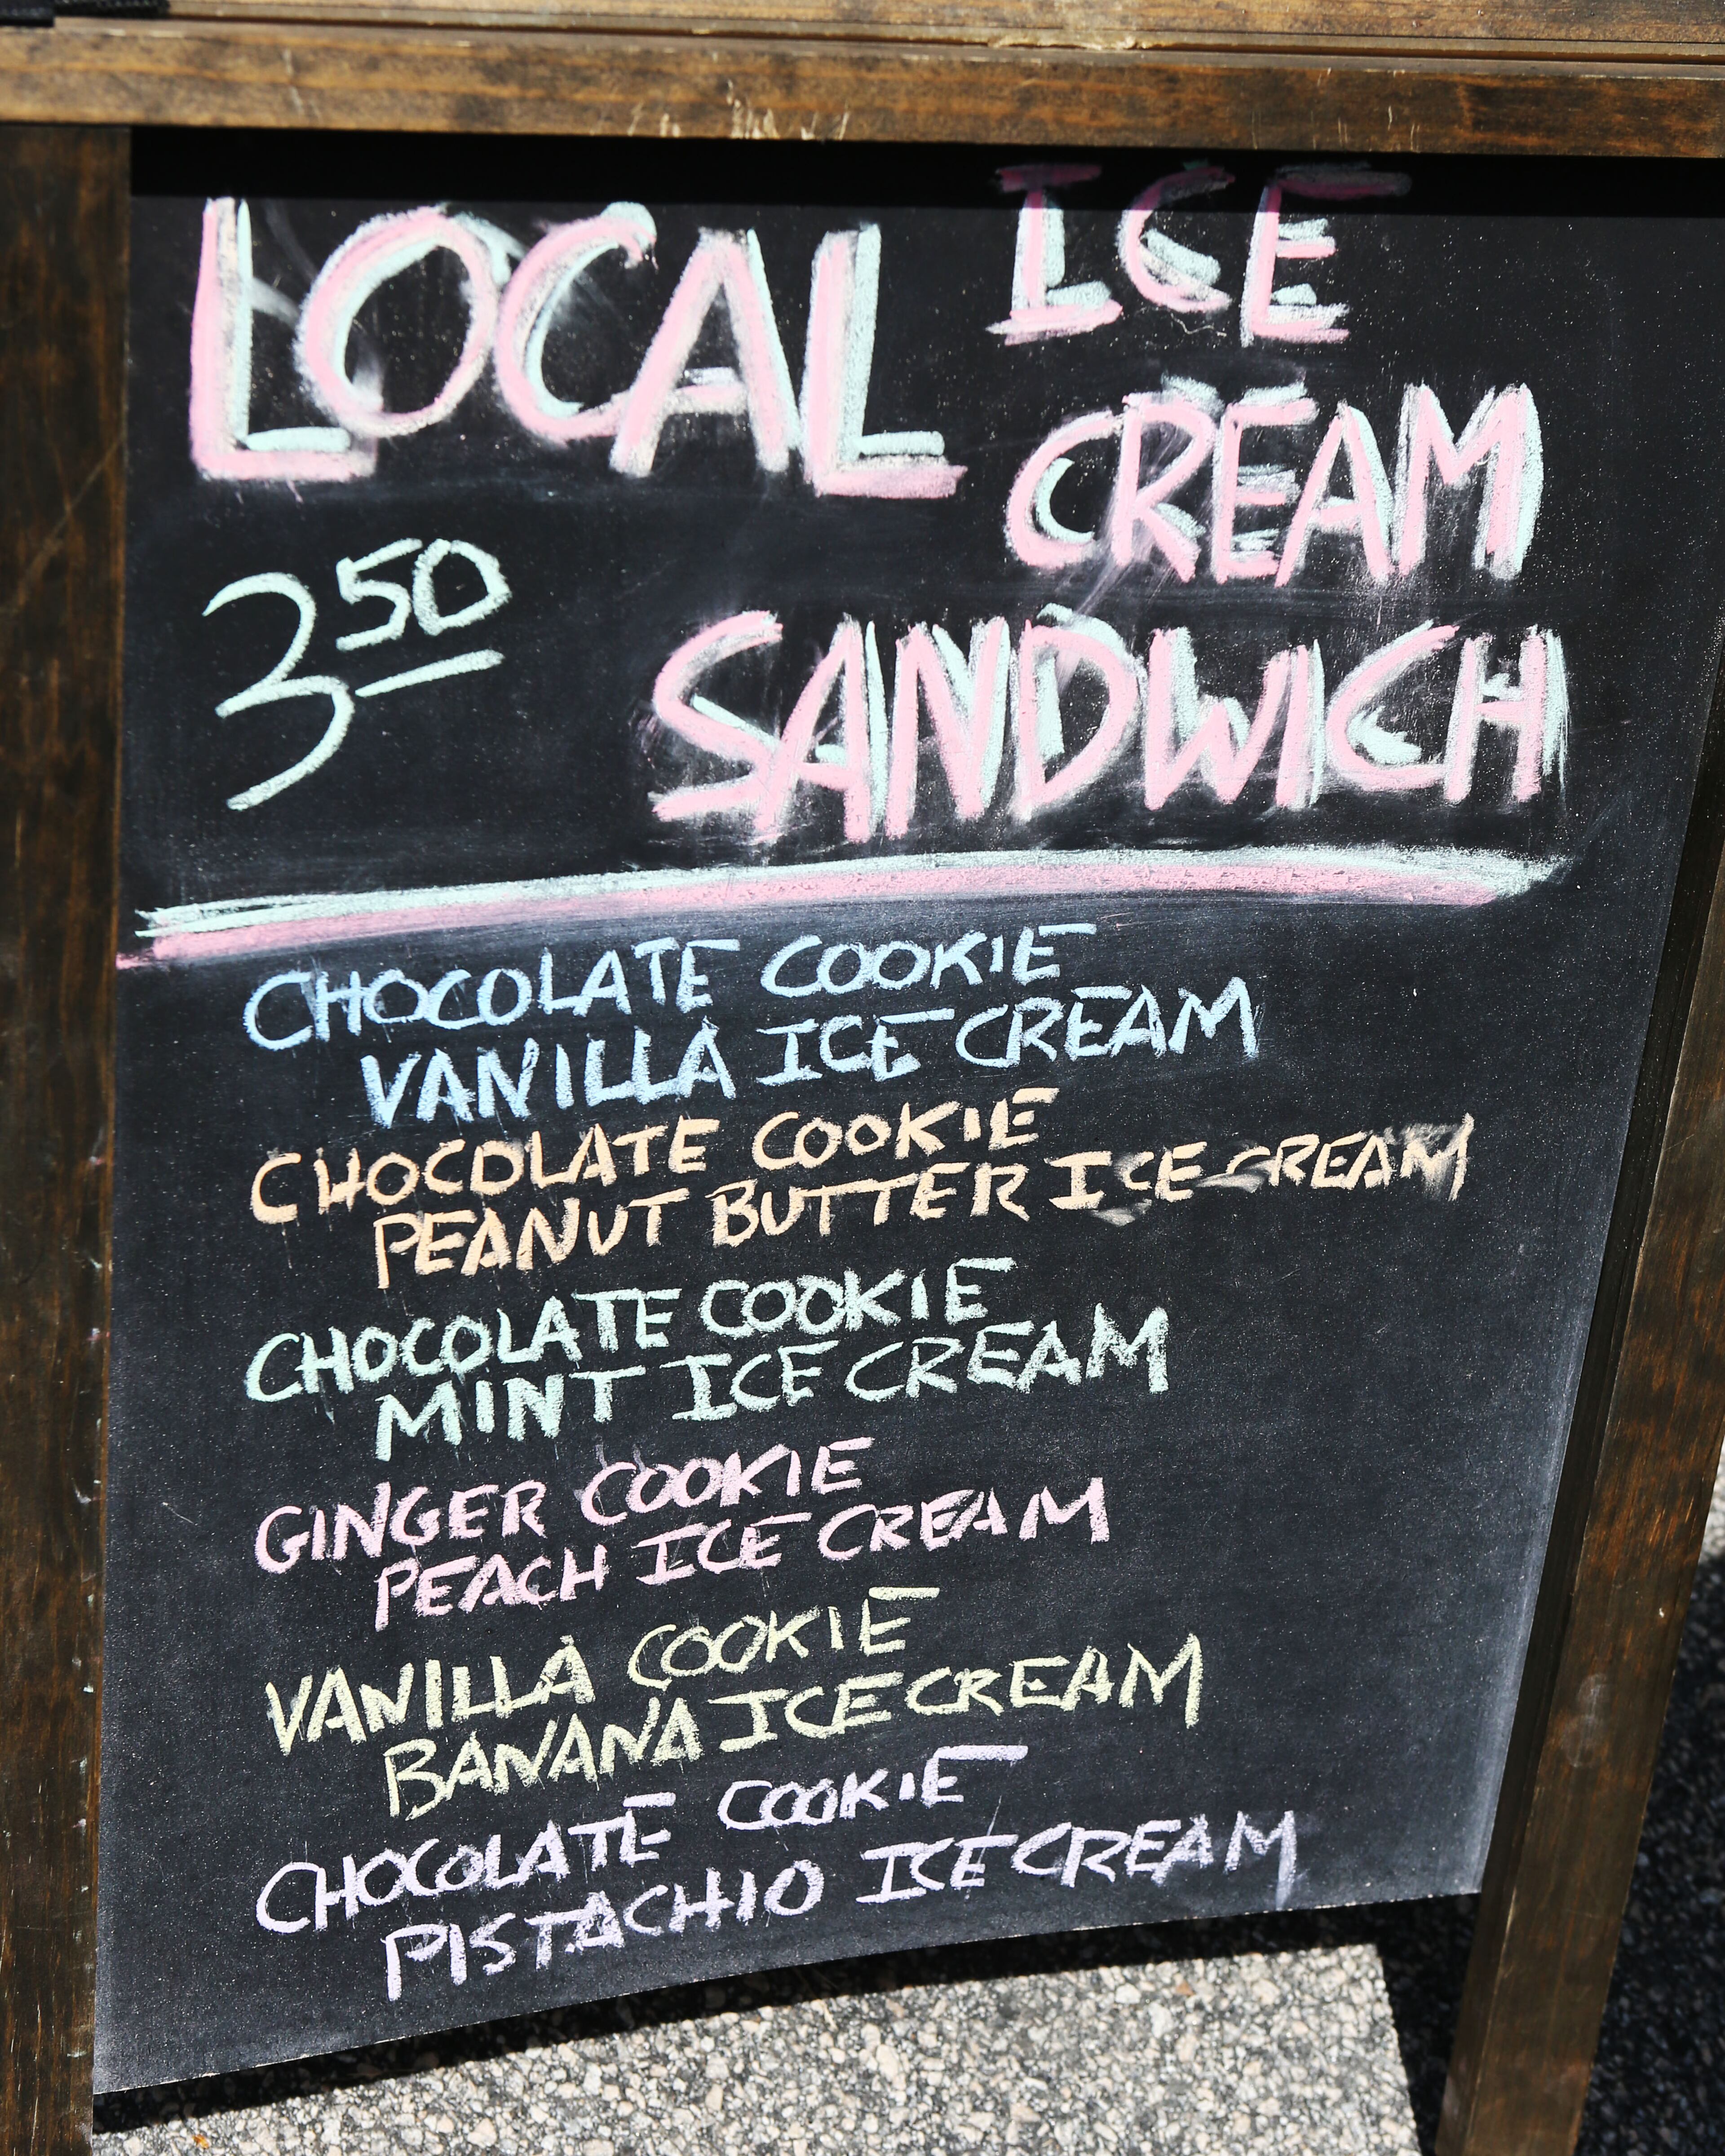 LOCAL ICE
CREAM
3.50
SANDWICH
CHOCOLATE COOKIE
VANILLA ICE CREAM
CHOCOLATE COOKIE
PEANUT BUTTER ICE CREAM
CHOCOLATE COOKIE
MINT ICE CREAM
GINGER COOKIE
PEACH ICE CREAM
VANILLA COOKIE
BANANA ICE CREAM
CHOCOLATE COOKIE
PISTACHIO ICE CREAM